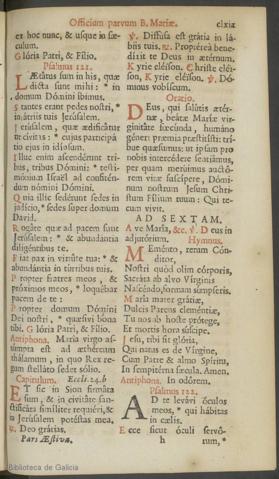 Officium parvum B. Mariæ. clxix
et hoc nunc, & usque in sæ-
culum.
Glória Patri, & Fílio.
Psalmus 121.
LÆtátus sum in his, quæ
dicta sunt mihi: * in
domum Dómini ibimus.
Stantes erant pedes nostri, *
in átriis tuis Jerúsalem.
Jerúsalem, quæ ædificátur
ut civitas: * cujus participá-
tio ejus in idípsum.
Illuc enim ascendérunt tri-
bus, tribus Dómini: * testi-
mónium Israël ad confitén-
dum nómini Dómini.
Quia illic sedérunt sedes in
judício, * sedes super domum
David.
Rogáte quæ ad pacem sunt
Jerúsalem: * & abundántia
diligéntibus te.
Fiat pax in virtúte tua: * &
abundántia in túrribus tuis.
Propter fratres meos, &
próximos meos, * loquébar
pacem de te:
Propter domum Dómini
Dei nostri, * quæsívi bona
tibi. Glória Patri, & Fílio.
Antiphona. María virgo as-
súmpta est ad æthéreum
thálamum, in quo Rex re-
gum stelláto sedet sólio.
Capitulum. Eccli. 24. b
ET sic in Sion firmáta
sum, & in civitáte san-
ctificáta simíliter requiévi, &
in Jerúsalem potéstas mea.
℟. Deo grátias.
Pars Æstiva.
℣. Diffúsa est grátia in lá-
biis tuis. ℟. Proptérea bene-
díxit te Deus in ætérnum.
Kyrie eléison. Christe eléi-
son, Kyrie eléison. ℣. Dó-
minus vobíscum.
Oratio.
DEus, qui salútis ætér-
næ, beátæ Maríæ vir-
ginitáte fœcúnda, humáno
géneri prǽmia præstitísti: trí-
bue quǽsumus; ut ipsam pro
nobis intercédere sentiámus,
per quam merúimus auctó-
rem vitæ suscípere, Dómi-
num nostrum Jesum Chri-
stum Fílium tuum: Qui te-
cum vivit.
AD SEXTAM.
Ave María, &c. ℣. Deus in
adjutórium. Hymnus.
MEménto, rerum Cón-
ditor,
Nostri quod olim córporis,
Sacráta ab alvo Vírginis
Nascéndo, formam súmpseris.
María mater grátiæ,
Dulcis Parens cleméntiæ,
Tu nos ab hoste prótege,
Et mortis hora súscipe.
Jesu, tibi sit glória,
Qui natus es de Vírgine,
Cum Patre & almo Spíritu,
In sempitérna sǽcula. Amen.
Antiphona. In odórem.
Psalmus 122.
AD te levávi óculos
meos, * qui hábitas
in cælis.
Ecce sicut óculi servó-
h rum, *
Biblioteca de Galicia